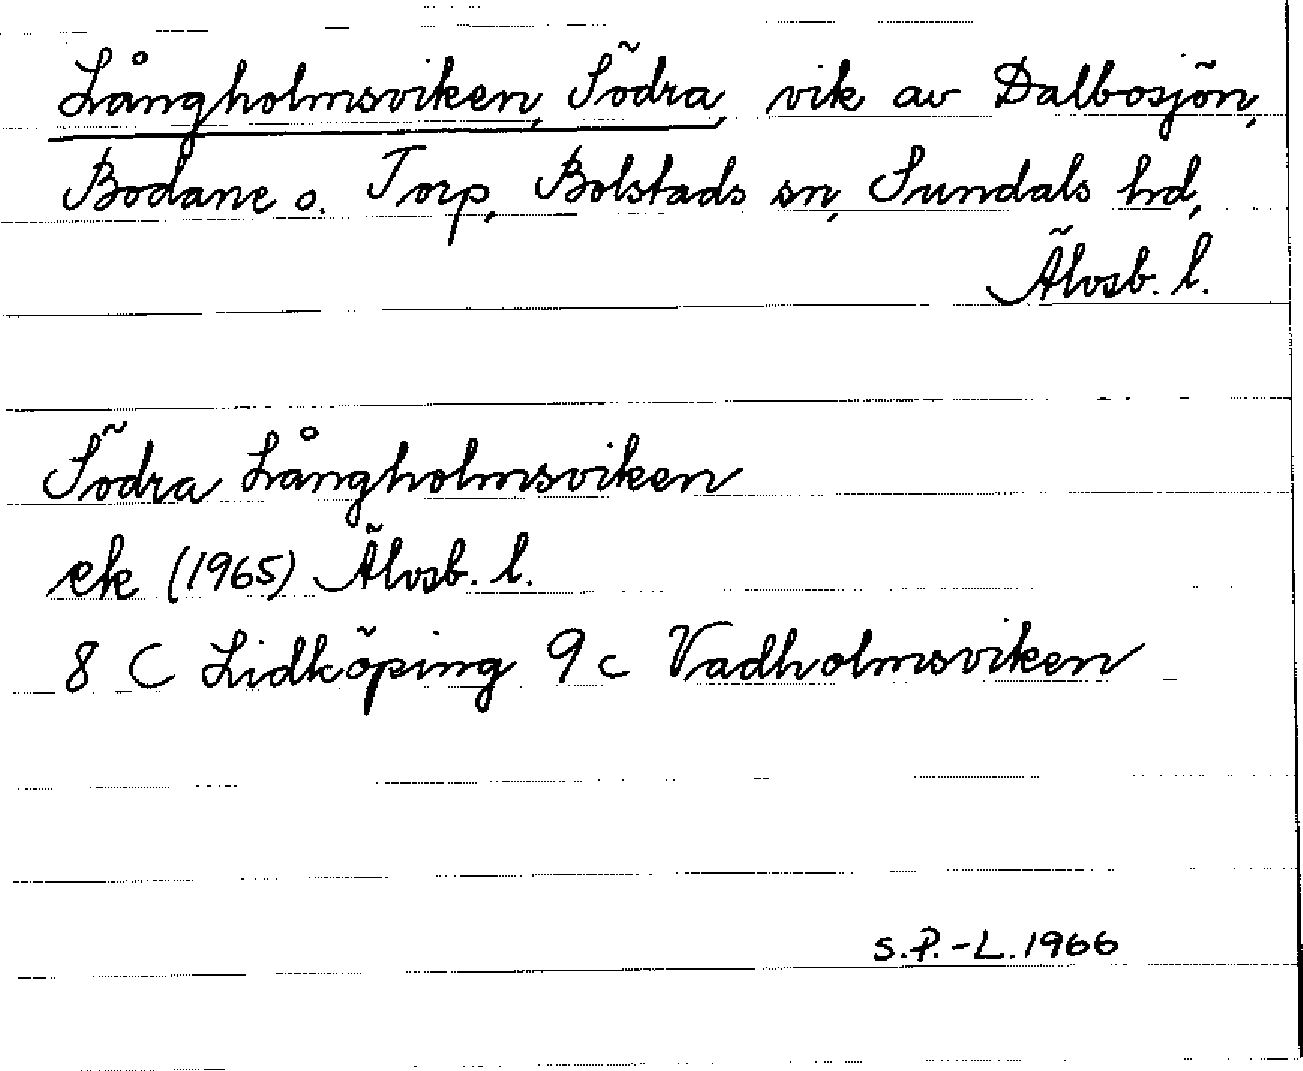 Långholmsviken, Södra, vik av Dalbosjön,
Bodane o. Torp, Bolstads sn, Sundals hd,
Älvsb. l.
Södra Långholmsviken
ek (1965) Älvsb. l.
8 C Lidköping 9 c Vadholmsviken
S.P.-L. 1966